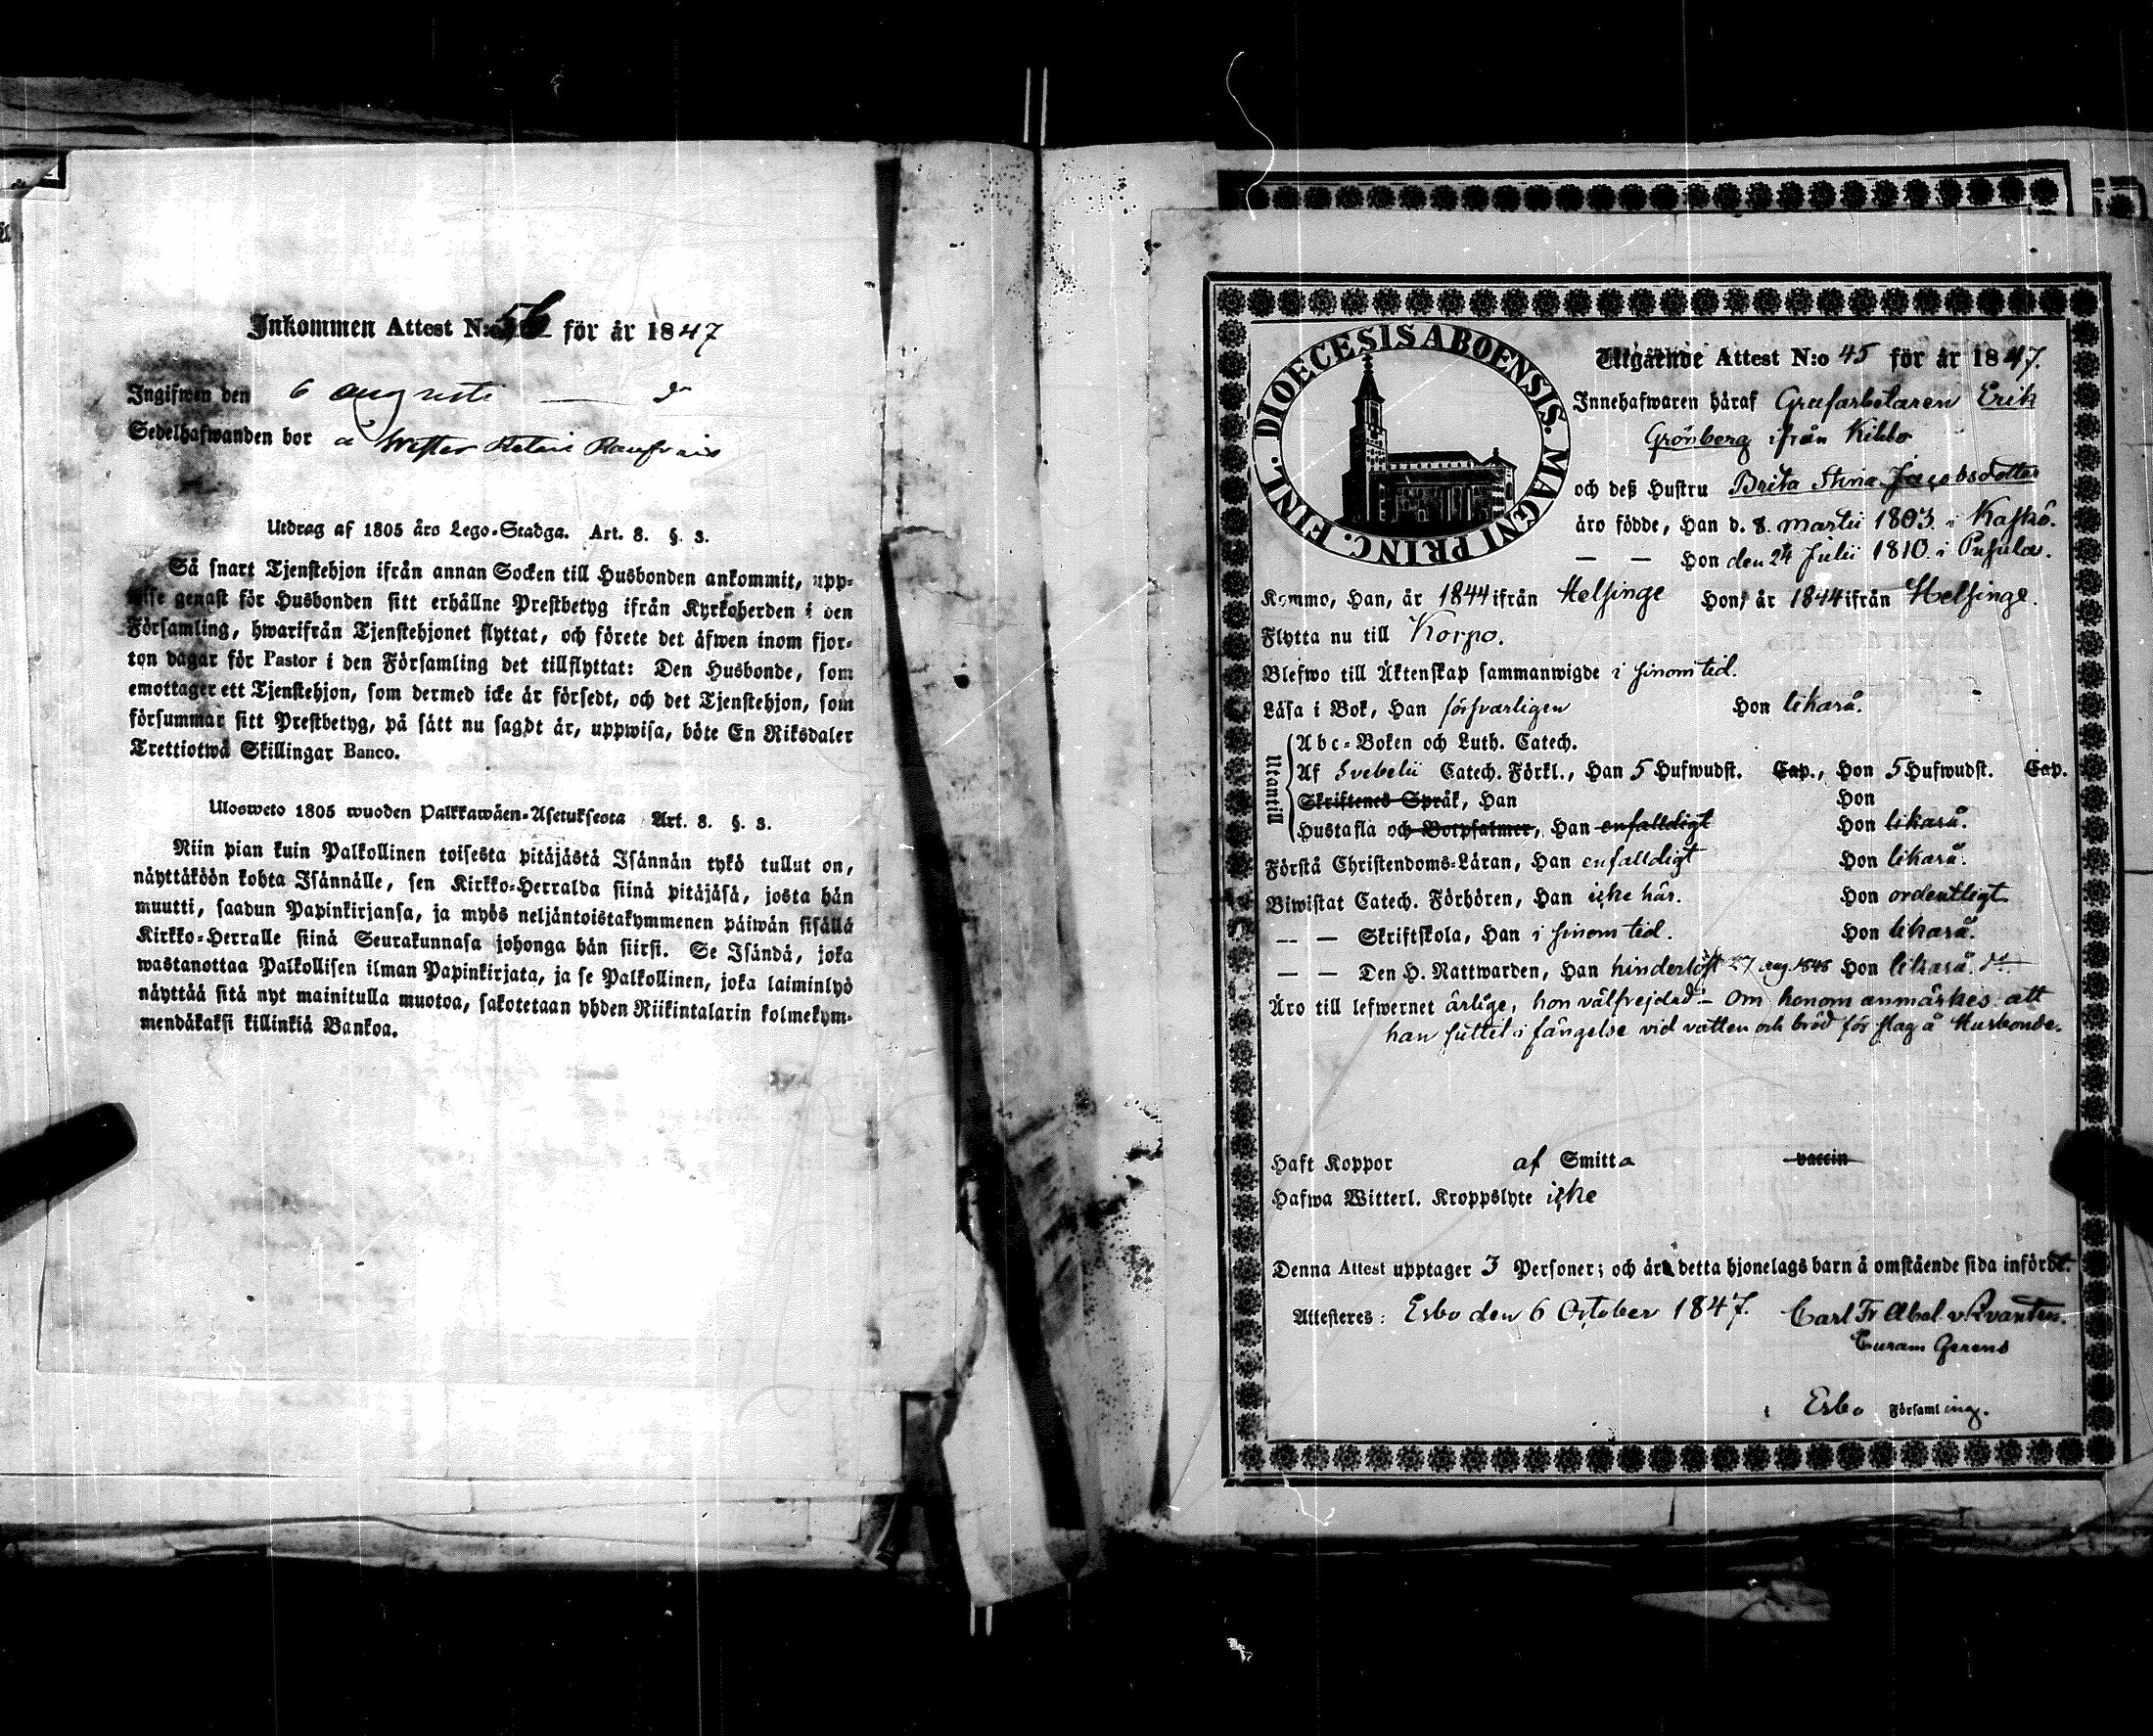 Inkommen Attest N:o 56 för år 1847
Ingifwen den 6 augusti
Sedelhafwanden bor å Wester
Utdrag af 1805 års Lego-Stadga. Art. 8. §. 3.
Så snart Tjenstehjon ifrån annan Socken till Husbonden ankommit, upp-
wise genast för Husbonden sitt erhållne Prestbetyg ifrån Kyrkoherden i den
Församling, hwarifrån Tjenstehjonet flyttat, och förete det äfwen inom fjor-
ton dagar för Pastor i den Församling det tillflyttat: Den Husbonde, som
emottager ett Tjenstehjon, som dermed icke är försedt, och det Tjenstehjon, som
försummar sitt Prestbetyg, på sätt nu sagdt är, uppwisa, böte En Riksdaler
Trettiotwå Skillingar Banco.
Ulosweto 1805 wuoden Palkkawäen-Asetuksesta Art. 8. §. 3.
Niin pian kuin Palkollinen toisesta pitäjästä Isännän tykö tullut on,
näyttäköön kohta Isännälle, sen Kirkko-Herralda siinä pitäjäsä, josta hän
muutti, saadun Papinkirjansa, ja myös neljäntoistakymmenen päiwän sisällä
Kirkko-Herralle siinä Seurakunnasa johonga hän siirsi. Se Isändä, joka
wastanottaa Palkollisen ilman Papinkirjata, ja se Palkollinen, joka laiminlyö
näyttää sitä nyt mainitulla muotoa, sakotetaan yhden Riikintalarin kolmekym-
mendäkaksi killinkiä Bankoa.
DIOECESIS ABOENSIS. MAGNI PRINC. FINL.
Utgående Attest N:o 45 för år 1847.
Innehafwaren häraf Grufarbetaren Erik
Grönberg ifrån Kihlo
och deß Hustru Brita Stina Jacobsdotter
äro födde, Han d. 8. martii 1803. i Kaskö.
— — Hon den 24 Julii 1810. i Pusula.
Kommo, Han, år 1844 ifrån Helsinge Hon, år 1844 ifrån Helsinge.
Flytta nu till Korpo.
Blefwo till Äktenskap sammanwigde i sinom tid.
Läsa i Bok, Han försvarligen Hon likaså.
Utantill
Abc-Boken och Luth. Catech.
Af Svebelii Catech. Förkl., Han 5 Hufwudst. Cap., Hon 5 Hufwudst. Cap.
Skriftenes Språk, Han Hon
Hustafla och Botpsalmer, Han enfalldigt Hon likaså.
Förstå Christendoms-Läran, Han enfalldigt Hon likaså.
Biwistat Catech. Förhören, Han icke här. Hon ordentligt
— — Skriftskola, Han i sinom tid. Hon likaså.
— — Den H. Nattwarden, Han hinderlöst 27 aug. 1846 Hon likaså. do
Äro till lefwernet ärlige, hon välfrejdad. – Om honom anmärkes att
han suttit i fängelse vid vatten och bröd för slag å Husbonde.
Haft Koppor af Smitta vaccin
Hafwa Witterl. Kroppslyte icke
Denna Attest upptager 3 Personer; och är detta hjonelags barn å omstående sida infördt.
Attesteres: Esbo den 6 October 1847. Carl Fr Abel v Qvanten.
Curam Gerens
i Esbo Församling.